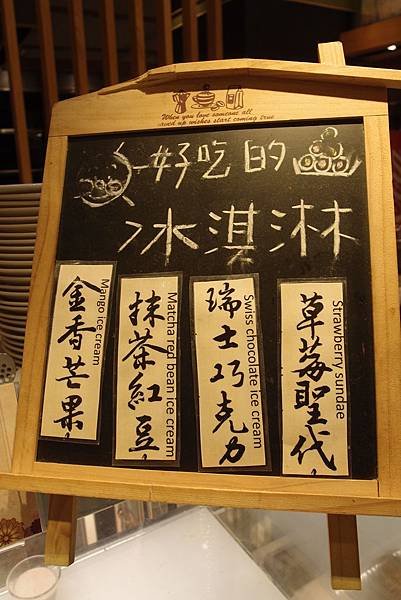 When you love someone all
saved up wishes start coming true
好吃的
冰淇淋
草莓聖代
Strawberry sundae
瑞士巧克力
Swiss chocolate ice cream
抹茶紅豆
Matcha red bean ice cream
金香芒果
Mango ice cream